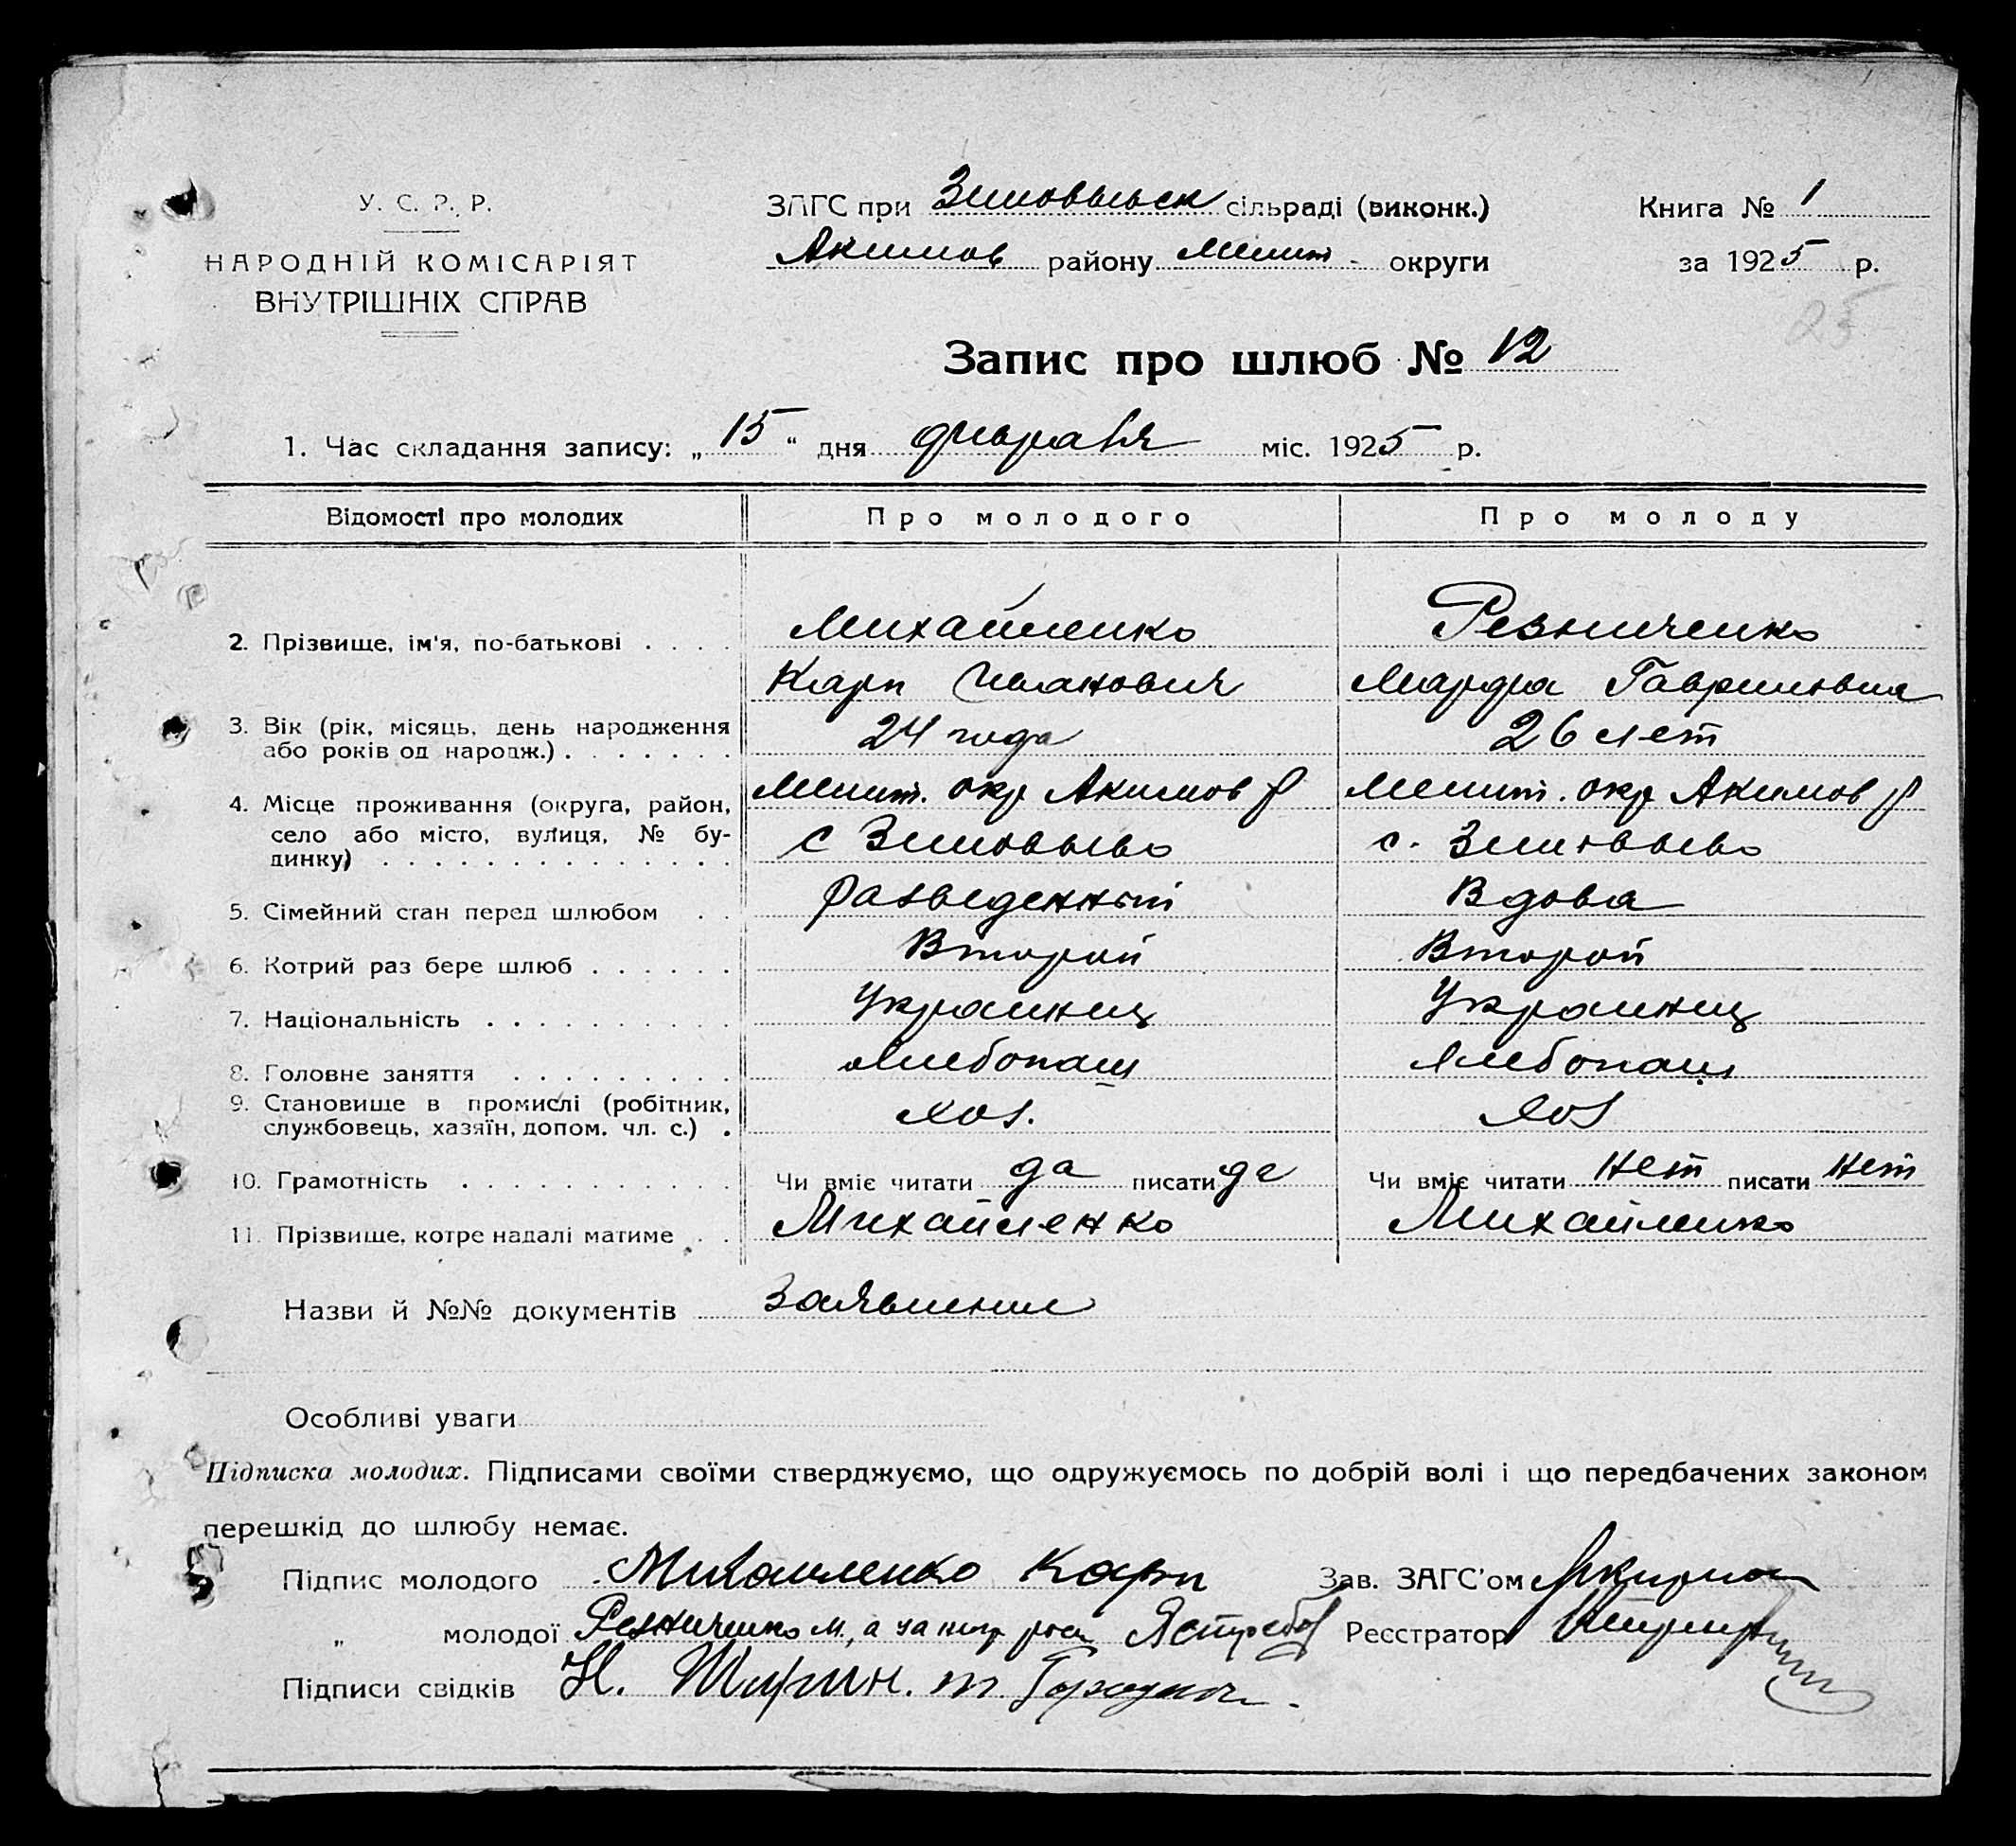 У. С. Р. Р.
НАРОДНІЙ КОМІСАРІЯТ
ВНУТРІШНІХ СПРАВ
ЗАГС при Зиновьевск сільраді (виконк.)
Акимов району Мелит. округи
Книга № 1
за 1925 р.
25
Запис про шлюб № 12
1. Час складання запису: „15“ дня февраля міс. 1925 р.
Відомості про молодих Про молодого Про молоду
2. Прізвище, ім'я, по-батькові . . . . Михайленко Резниченко
Карп Иванович Марфа Гавриловна
3. Вік (рік, місяць, день народження або років од народж.) . . . . . . . 24 года 26 лет
4. Місце проживання (округа, район, село або місто, вулиця, № будинку) . . . . . . . . . . . . . . Мелит. окр Акимов р Мелит. окр Акимов р
с Зиновьево с. Зиновьево
5. Сімейний стан перед шлюбом . . Разведенный Вдова
6. Котрий раз бере шлюб . . . . . . Второй Второй
7. Національність . . . . . . . . . . Украинец Украинец
8. Головне заняття . . . . . . . . . Хлебопаш Хлебопаш
9. Становище в промислі (робітник, службовець, хазяїн, допом. чл. с.) . хоз. хоз
10. Грамотність . . . . . . . . . . . Чи вміє читати да писати да Чи вміє читати нет писати нет
11. Прізвище, котре надалі матиме . . Михайленко Михайленко
Назви й №№ документів Заявление
Особливі уваги
Підписка молодих. Підписами своїми стверджуємо, що одружуємось по добрій волі і що передбачених законом
перешкід до шлюбу немає.
Підпис молодого Михайленко Карп Зав. ЗАГС'ом
„ молодої Резниченко М., а за негр рос Ястребов Реєстратор
Підписи свідків Н. Ширин. т.